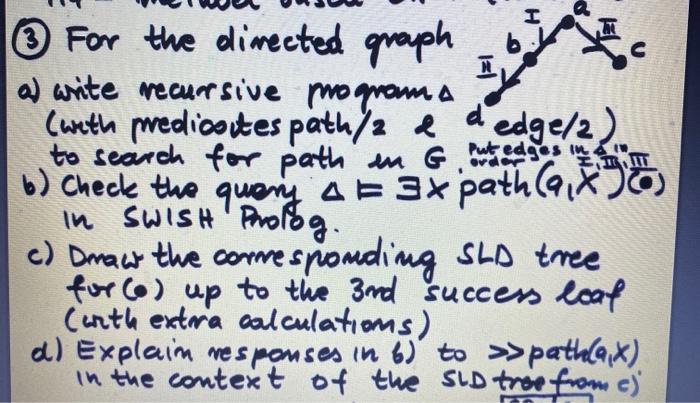 I a III
③ For the directed graph b c
II
a) write recursive program Δ
(with predicates path/2 & d edge/2)
to search for path in G. Put edges in Δ in order I, II, III
b) Check the query Δ ⊨ ∃x path(a,X) (•)
in SWISH Prolog.
c) Draw the corresponding SLD tree
for (•) up to the 3rd success leaf
(with extra calculations)
d) Explain responses in b) to >>path(a,X)
in the context of the SLD tree from c)